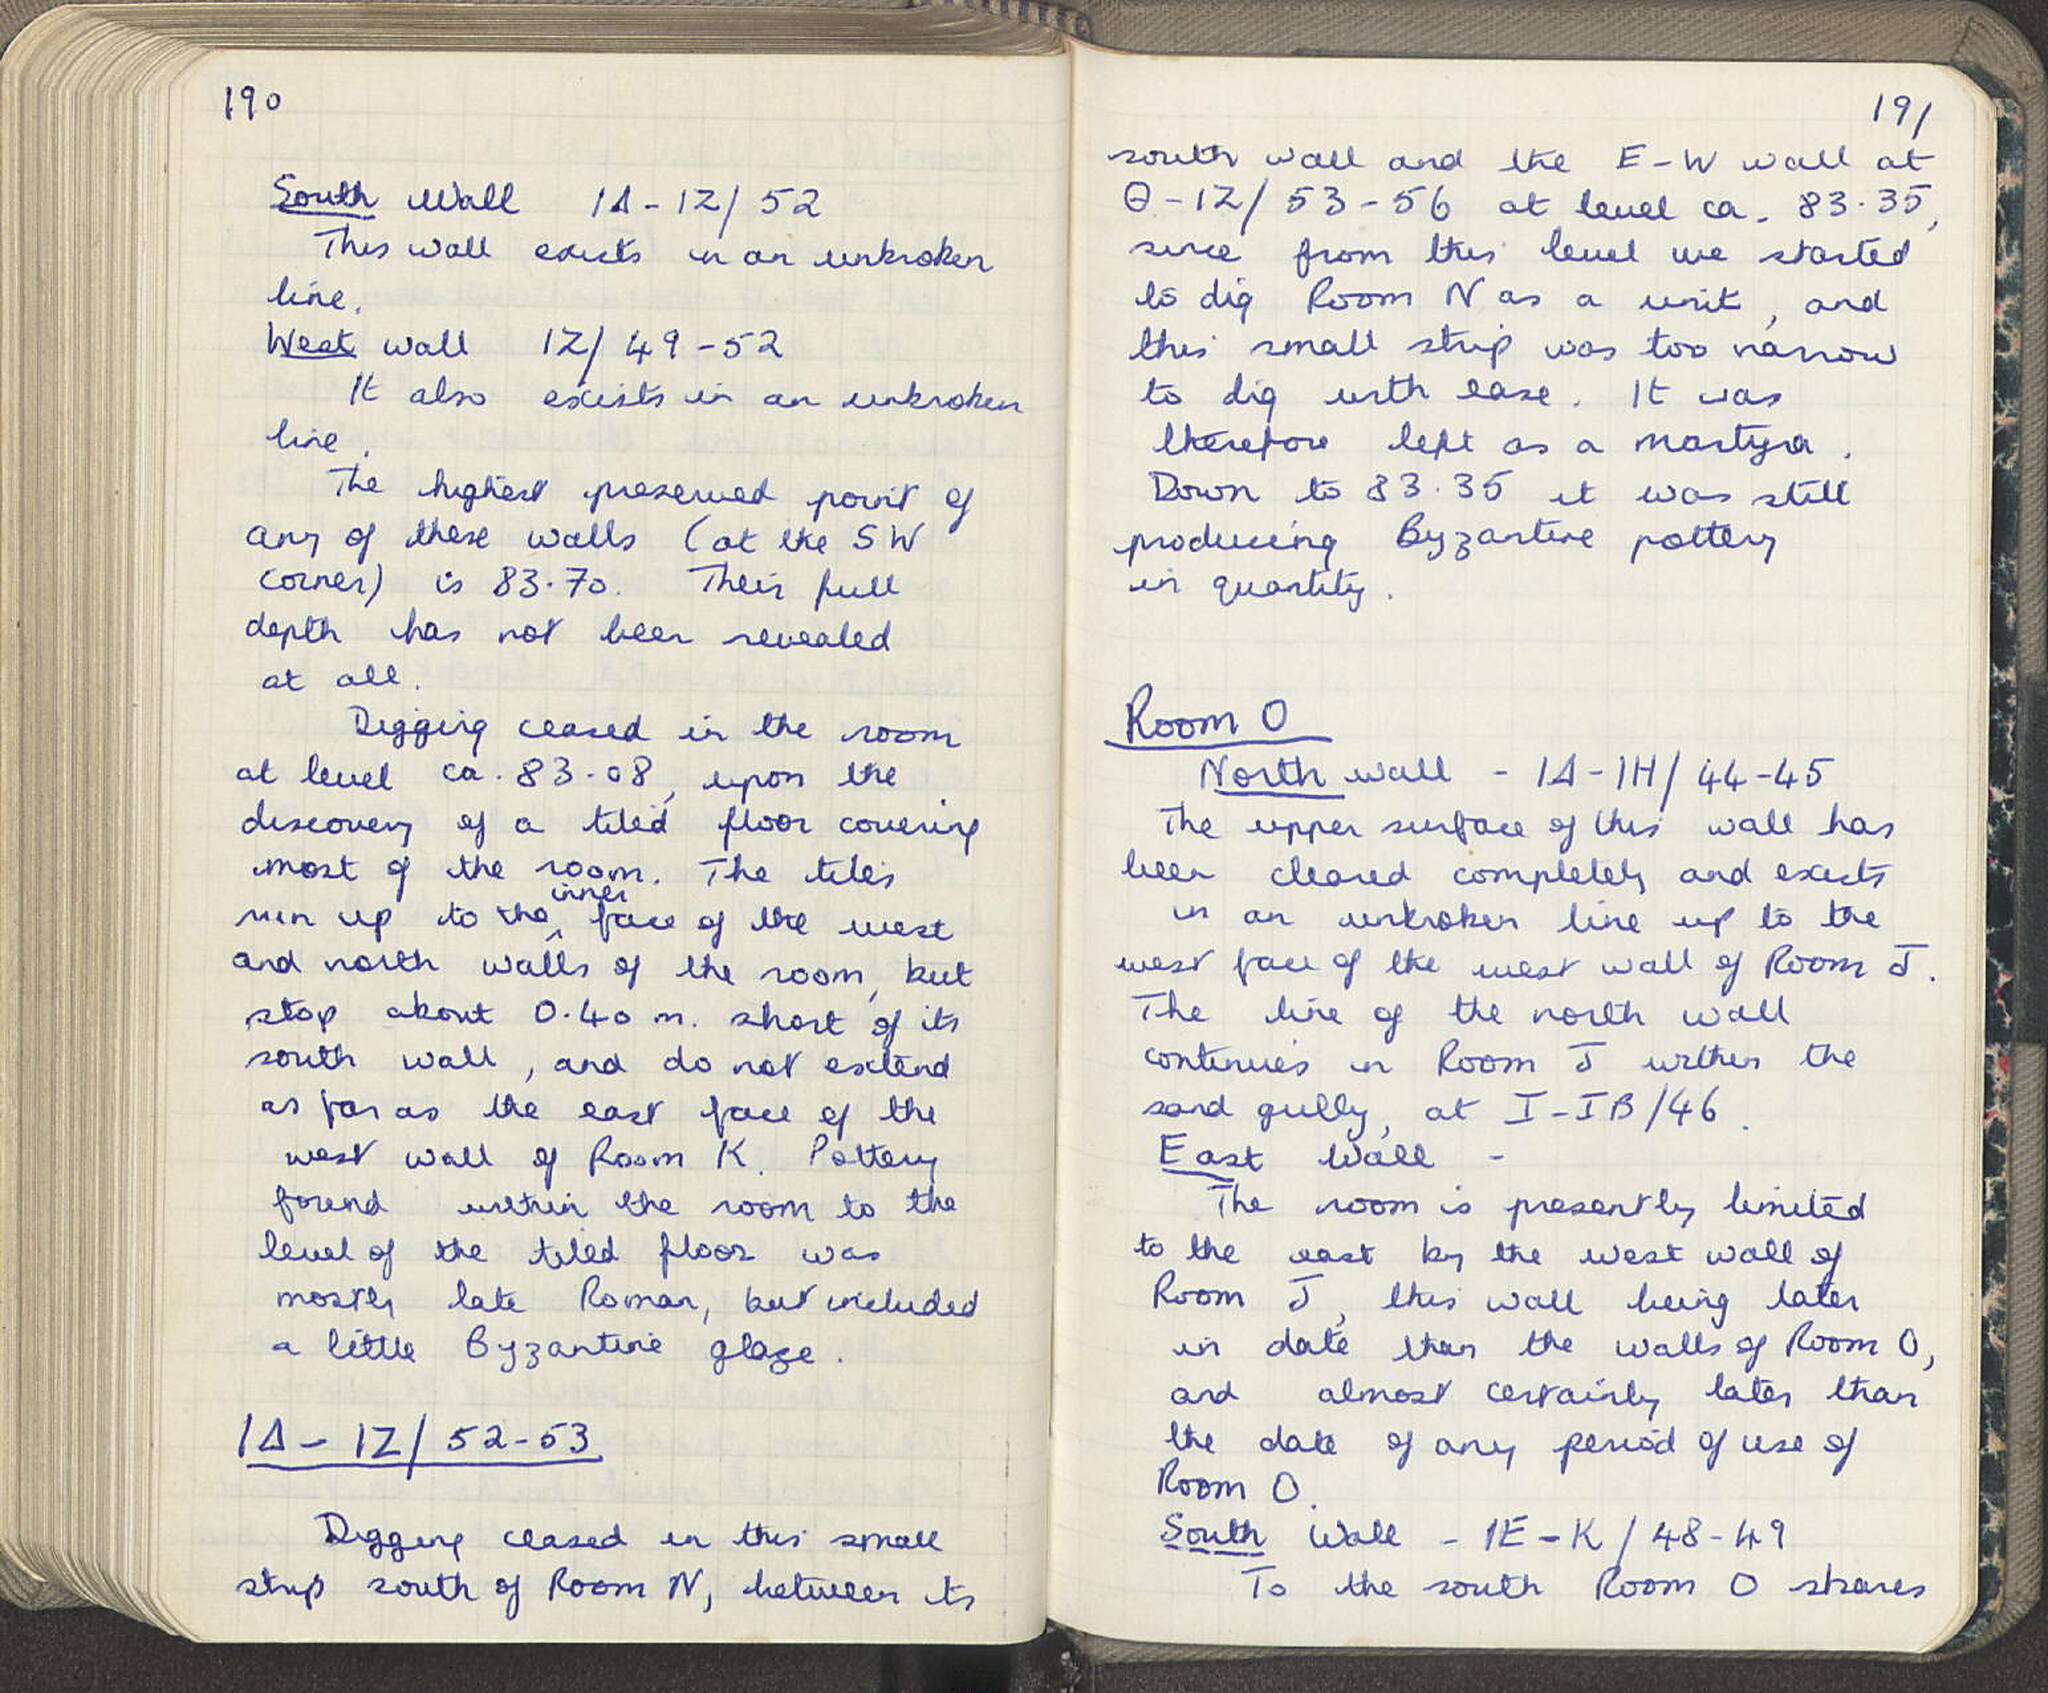 190
South Wall 1Δ-1Z/52
This wall exists in an unbroken
line.
West wall 1Z/49-52
It also exists in an unbroken
line.
The highest preserved point of
any of these walls (at the SW
corner) is 83.70. Their full
depth has not been revealed
at all.
Digging ceased in the room
at level ca. 83.08, upon the
discovery of a tiled floor covering
most of the room. The tiles
run up to the inner face of the west
and north walls of the room, but
stop about 0.40 m. short of its
south wall, and do not extend
as far as the east face of the
west wall of Room K. Pottery
found within the room to the
level of the tiled floor was
mostly late Roman, but included
a little Byzantine glaze.
1Δ-1Z/52-53
Digging ceased in this small
strip south of Room N, between its
191
south wall and the E-W wall at
Θ-1Z/53-56 at level ca. 83.35,
since from this level we started
to dig Room N as a unit, and
this small strip was too narrow
to dig with ease. It was
therefore left as a martyra.
Down to 83.35 it was still
producing Byzantine pottery
in quantity.
Room O
North wall - 1Δ-1H/44-45
The upper surface of this wall has
been cleared completely and exists
in an unbroken line up to the
west face of the west wall of Room J.
The line of the north wall
continues in Room J within the
sand gully, at I-IB/46.
East Wall -
The room is presently limited
to the east by the west wall of
Room J, this wall being later
in date than the walls of Room O,
and almost certainly later than
the date of any period of use of
Room O.
South Wall - 1E-K/48-49
To the south Room O shares